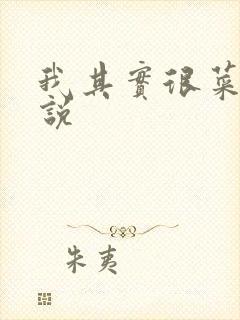 我其實很菜
說
朱夷